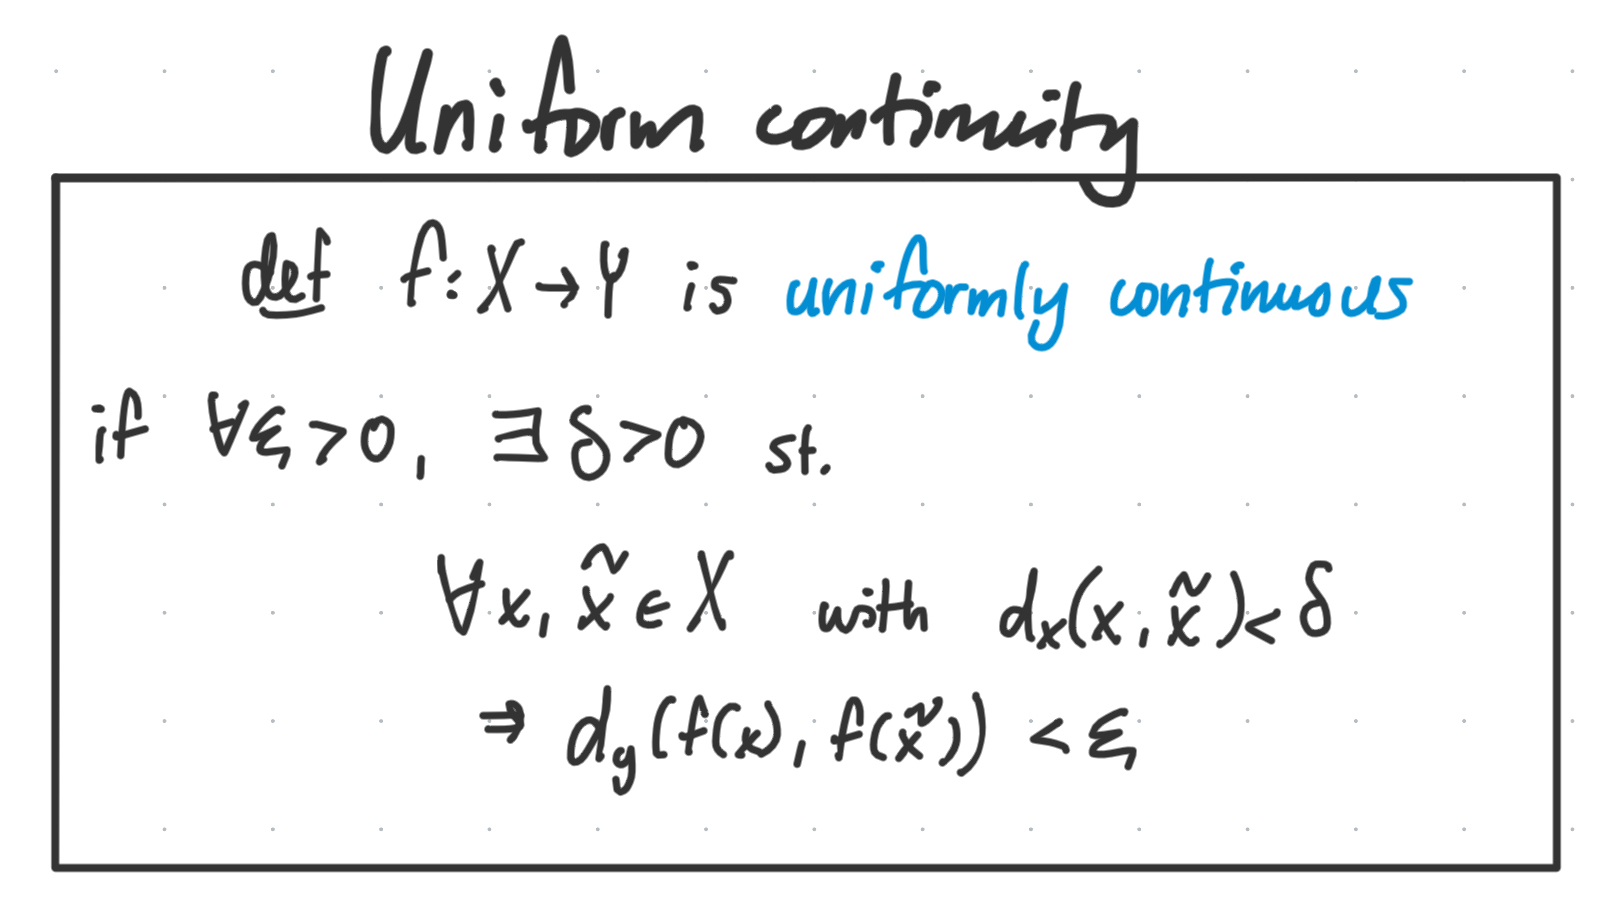 Uniform continuity
def f: X → Y is uniformly continuous
if ∀ξ > 0, ∃ δ > 0 st.
∀x, x̃ ∈ X with dₓ(x, x̃) < δ
⇒ d_y(f(x), f(x̃)) < ξ